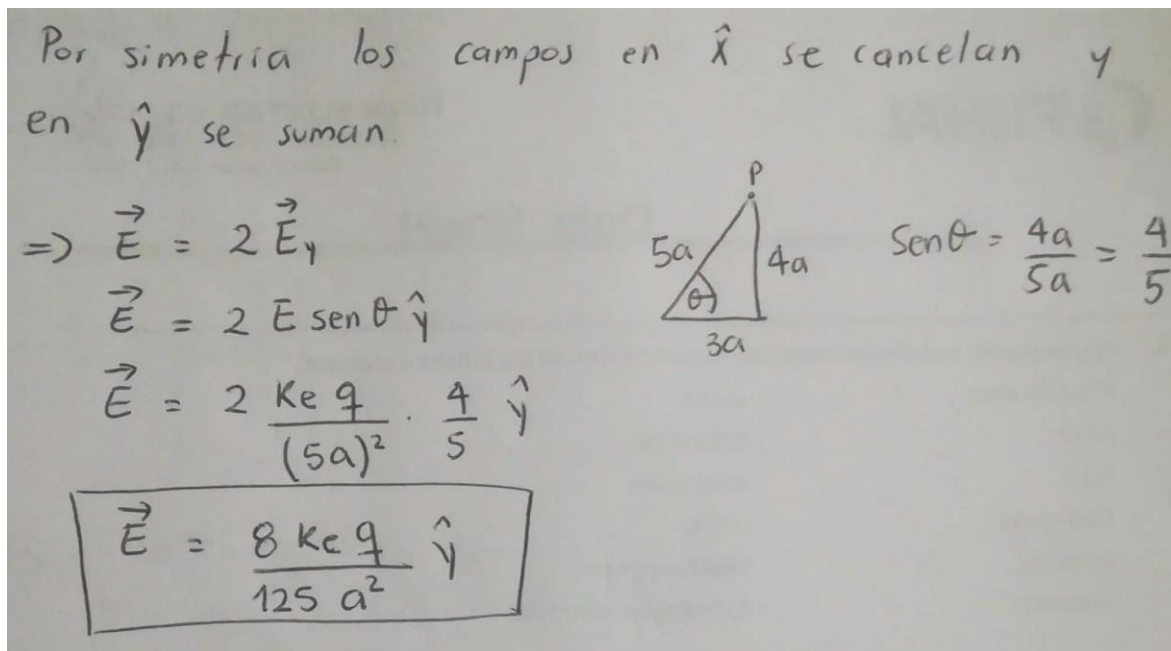 Por simetría los campos en x̂ se cancelan y
en ŷ se suman.
=> E⃗ = 2 E⃗y
E⃗ = 2 E sen θ ŷ
E⃗ = 2 Ke q / (5a)² · 4/5 ŷ
E⃗ = 8 Ke q / 125 a² ŷ
P
5a
4a
θ
3a
Sen θ = 4a/5a = 4/5